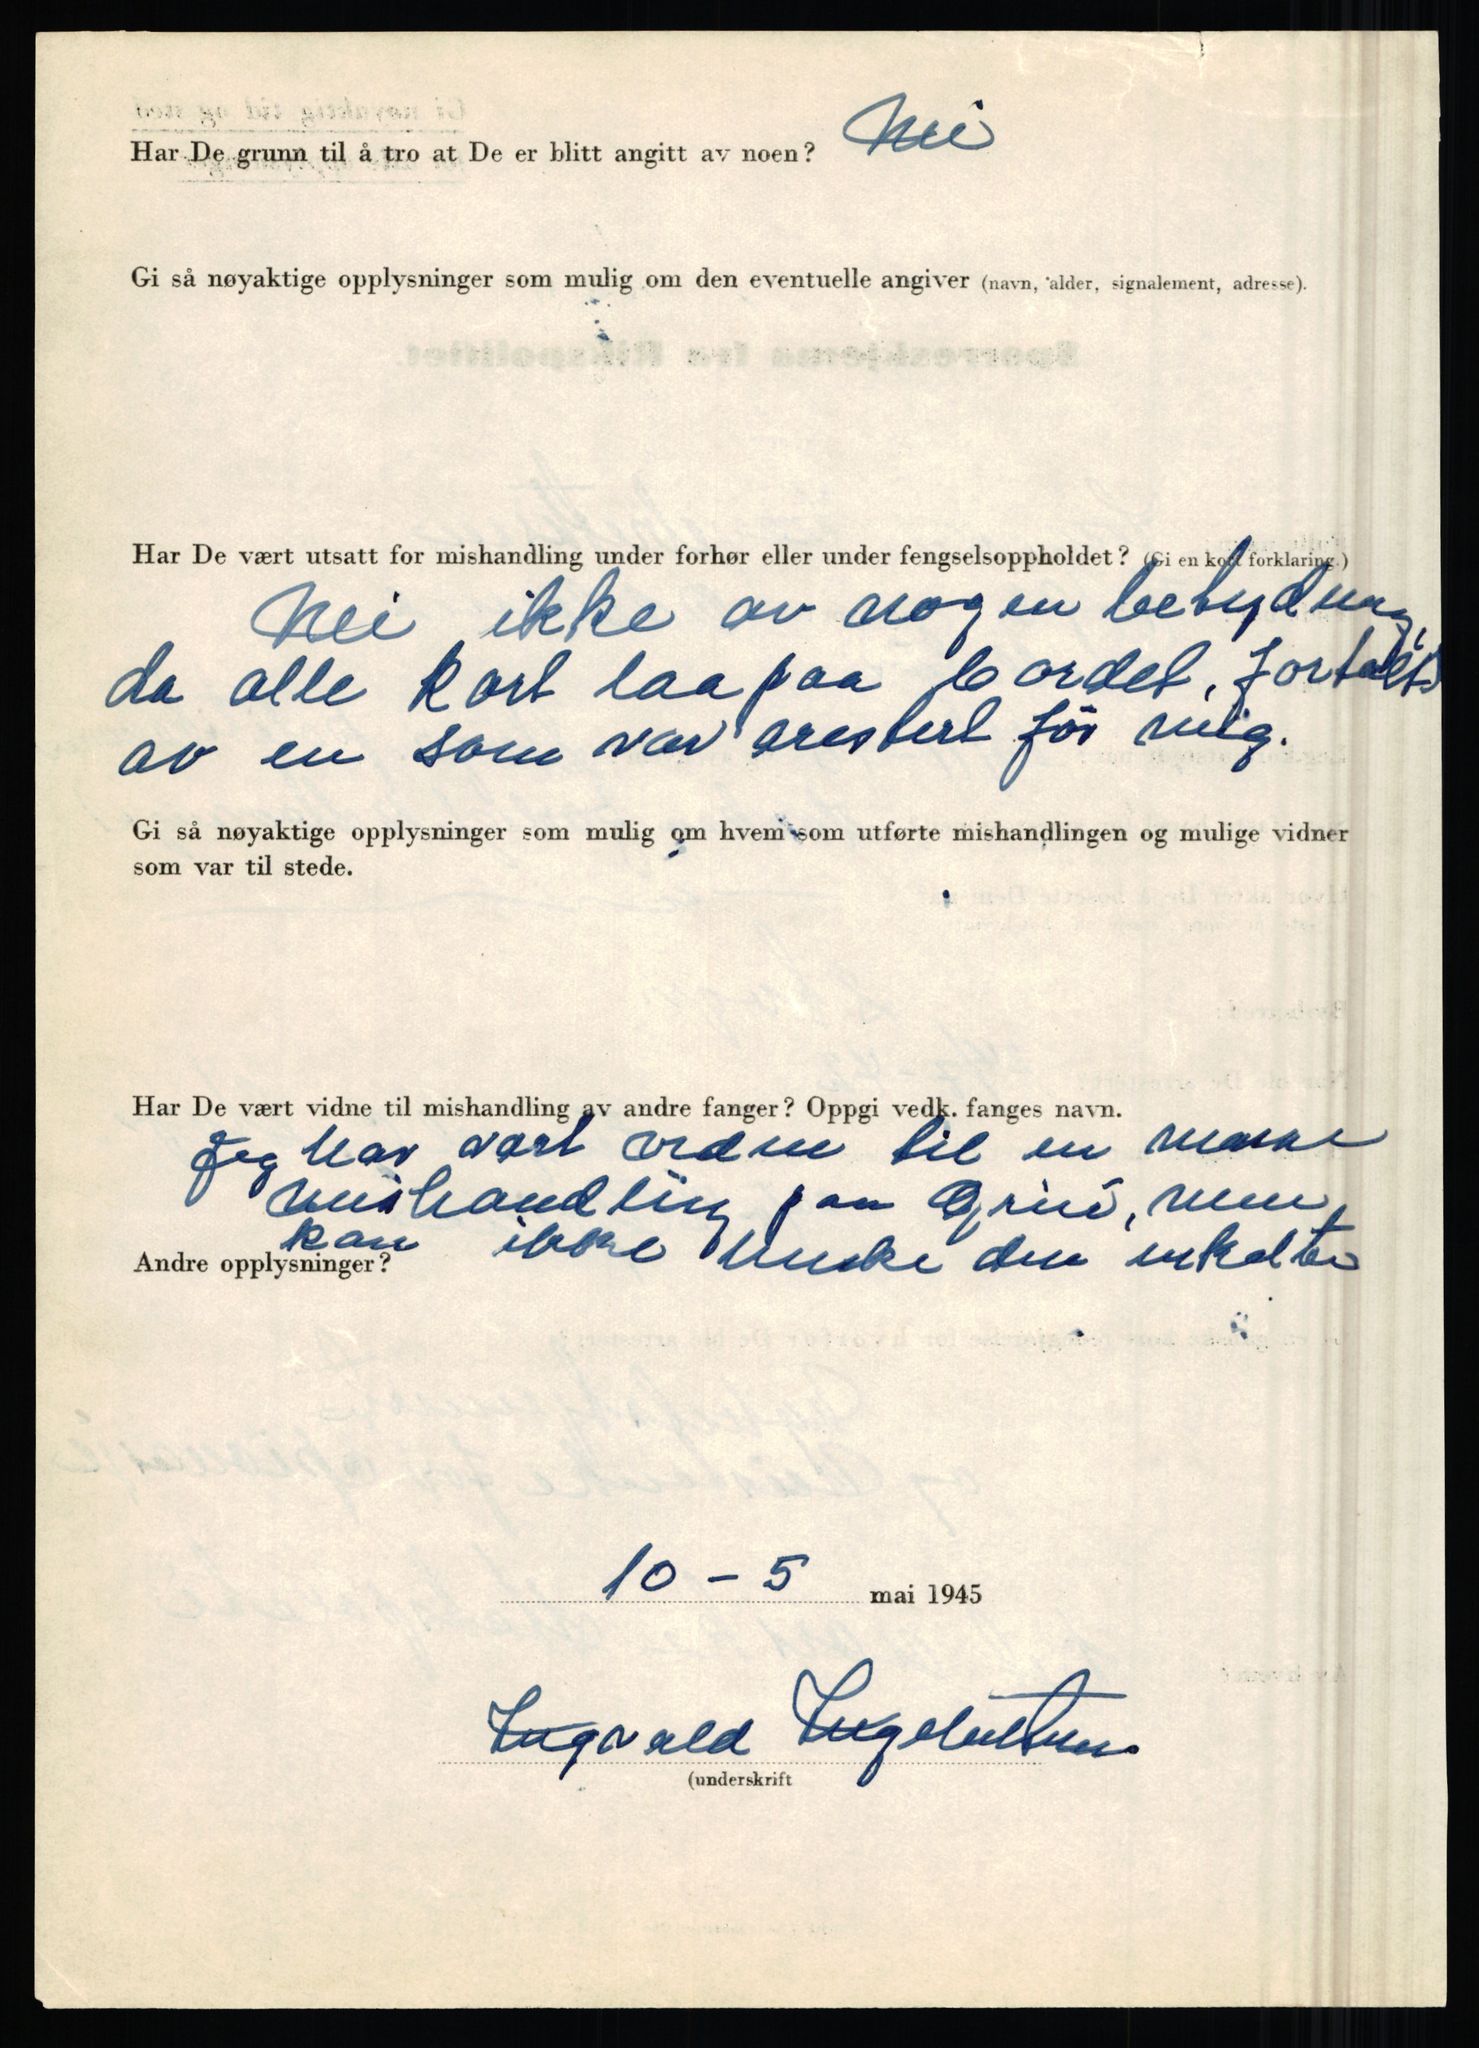 Har De grunn til å tro at De er blitt angitt av noen? Nei
Gi så nøyaktige opplysninger som mulig om den eventuelle angiver (navn, alder, signalement, adresse).
Har De vært utsatt for mishandling under forhør eller under fengselsoppholdet? (Gi en kort forklaring.)
Nei ikke av nogen betydning,
da alle kort laa paa bordet, fortalt
av en som var arestert før mig.
Gi så nøyaktige opplysninger som mulig om hvem som utførte mishandlingen og mulige vidner
som var til stede.
Har De vært vidne til mishandling av andre fanger? Oppgi vedk. fanges navn.
Jeg har vært vidne til en masse
mishandling paa Grini, men
kan ikke huske den enkelte
Andre opplysninger?
10 - 5 mai 1945
Ingvald
(underskrift